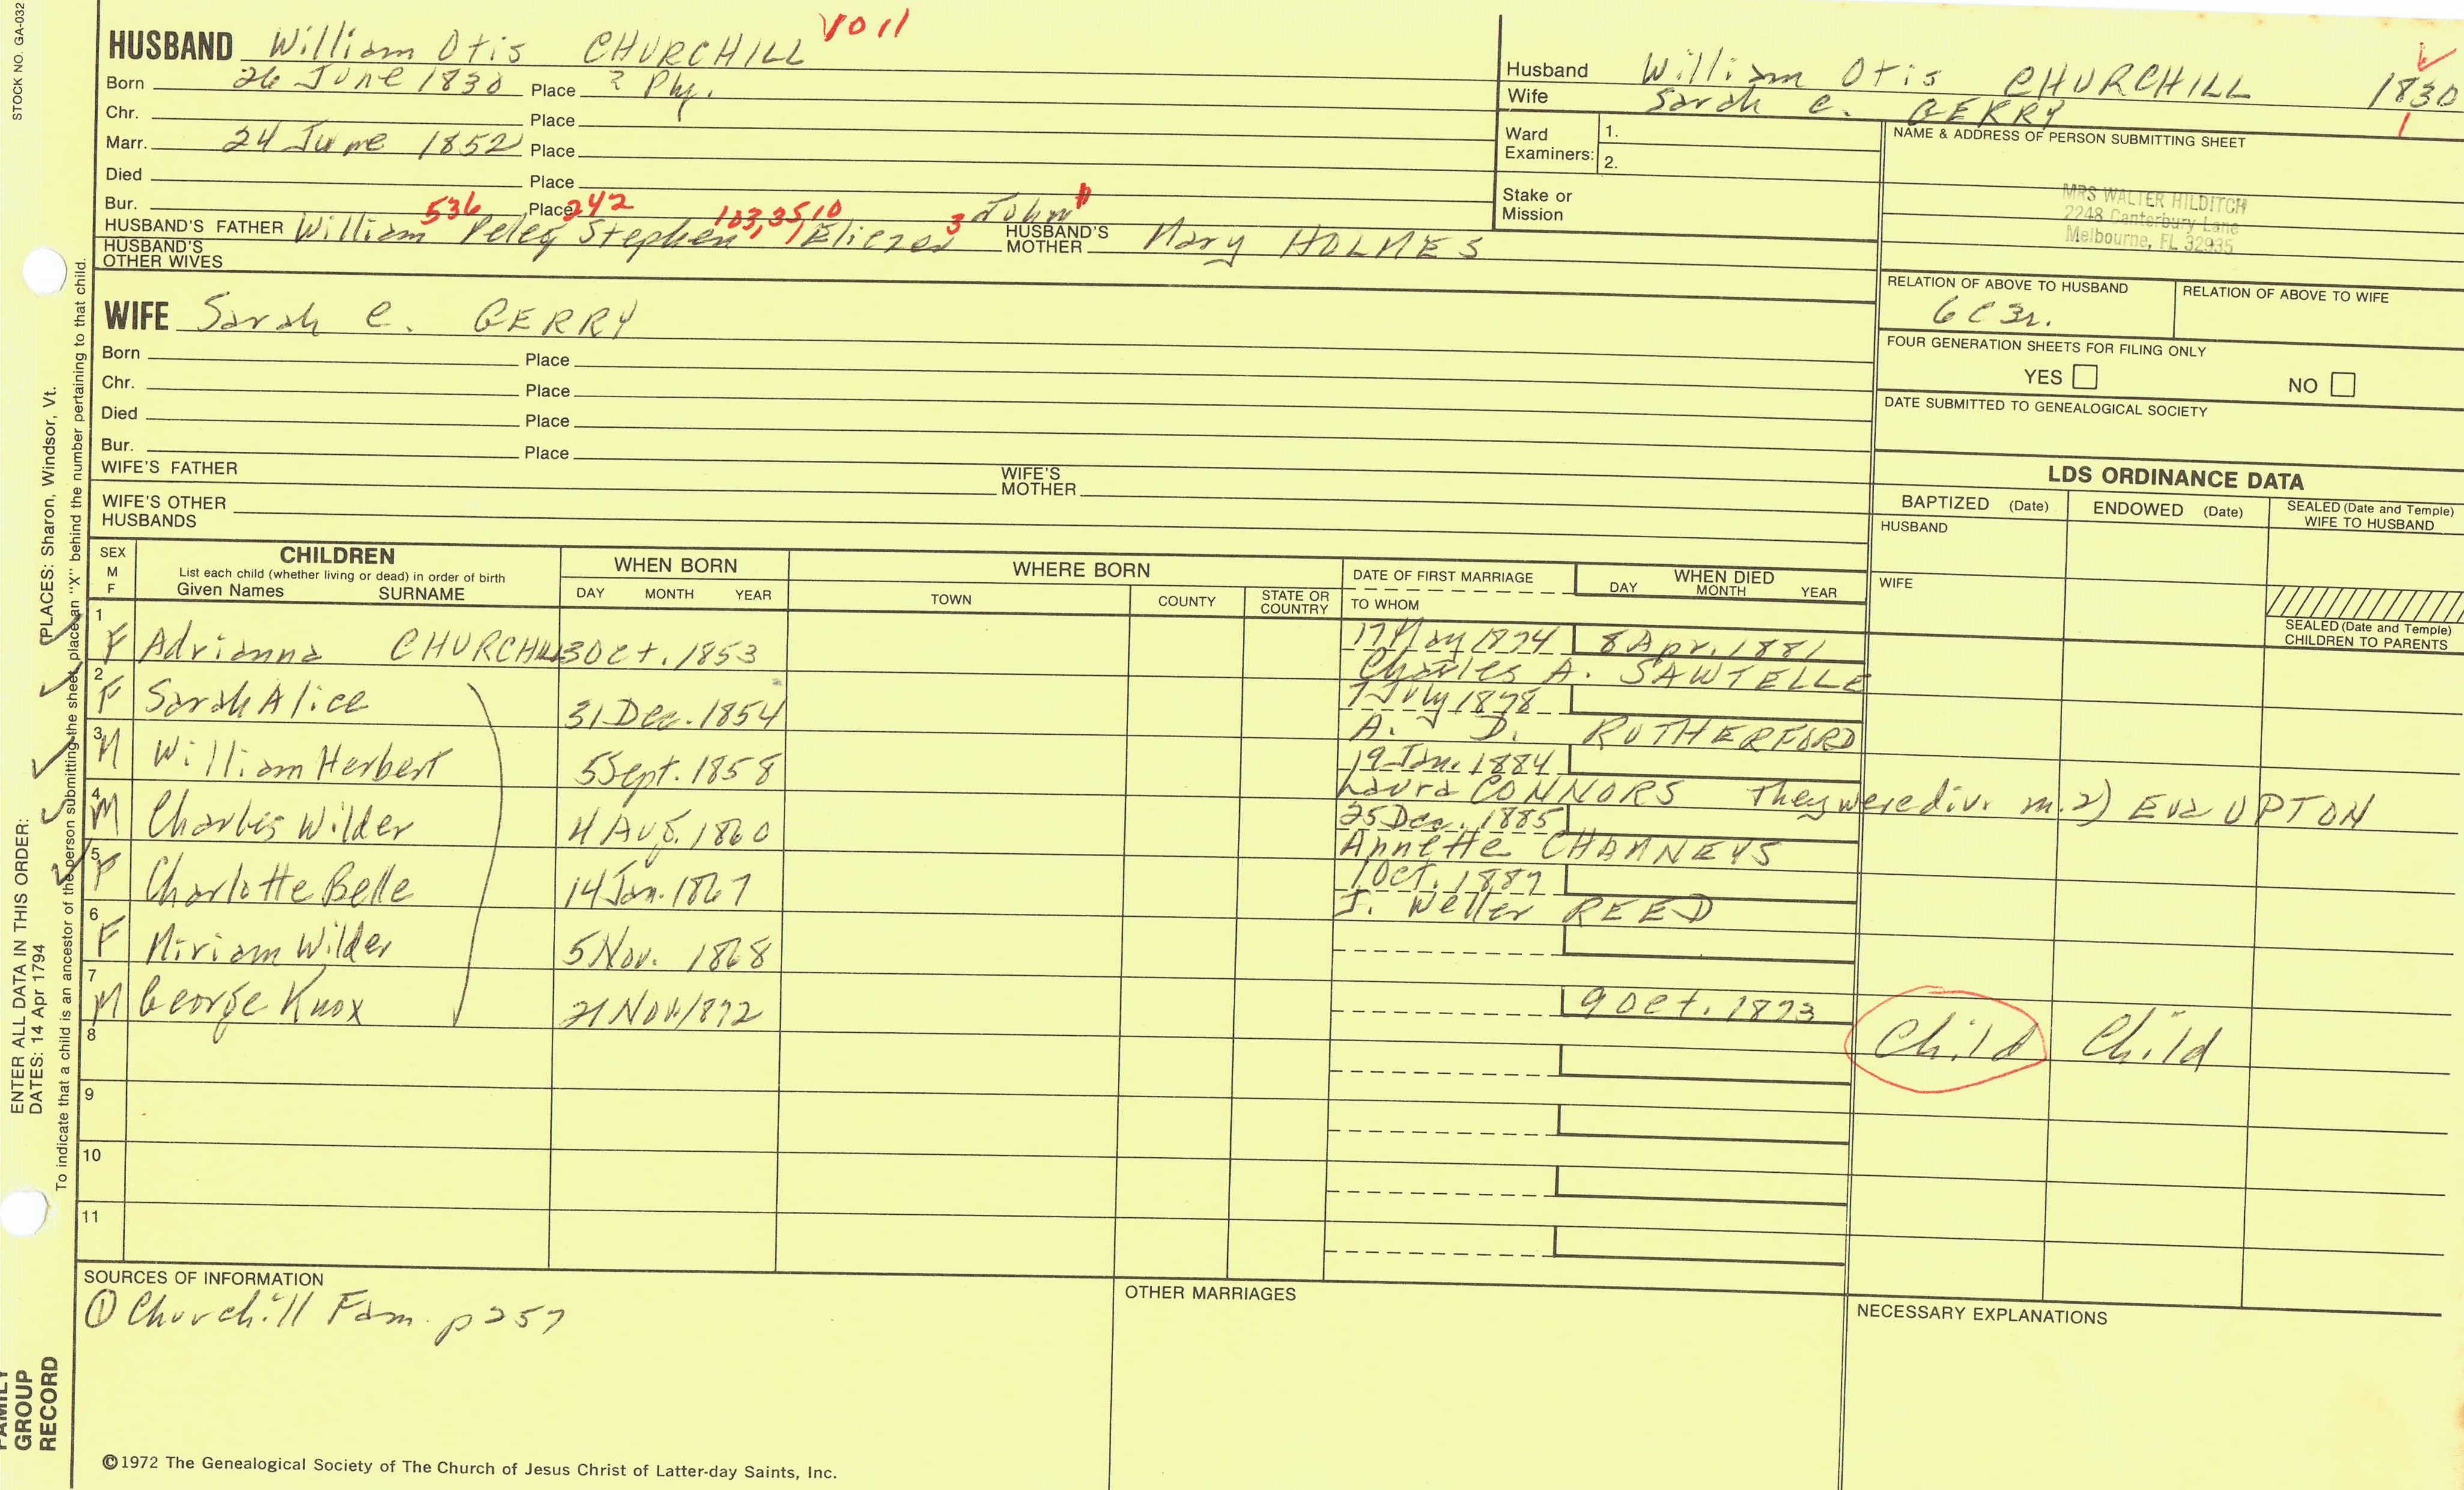 STOCK NO. GA-032
HUSBAND William Otis CHURCHILL
Born 26 June 1830 Place ? Ply.
Chr. Place
Marr. 24 June 1852 Place
Died Place
Bur. Place
536 242 103, 35, 10 3 John
HUSBAND'S FATHER William Peleg Stephen Eliezer HUSBAND'S MOTHER Mary HOLMES
HUSBAND'S OTHER WIVES
WIFE Sarah C. GERRY
Born Place
Chr. Place
Died Place
Bur. Place
WIFE'S FATHER WIFE'S MOTHER
WIFE'S OTHER HUSBANDS
Husband William Otis CHURCHILL 1830
Wife Sarah C. GERRY
Ward Examiners: 1.
2.
Stake or Mission
NAME & ADDRESS OF PERSON SUBMITTING SHEET
MRS WALTER HILDITCH
2248 Canterbury Lane
Melbourne, FL 32935
RELATION OF ABOVE TO HUSBAND RELATION OF ABOVE TO WIFE
6 C 3r.
FOUR GENERATION SHEETS FOR FILING ONLY
YES NO
DATE SUBMITTED TO GENEALOGICAL SOCIETY
LDS ORDINANCE DATA
BAPTIZED (Date) ENDOWED (Date) SEALED (Date and Temple) WIFE TO HUSBAND
HUSBAND
WIFE
SEALED (Date and Temple) CHILDREN TO PARENTS
SEX M F CHILDREN WHEN BORN WHERE BORN DATE OF FIRST MARRIAGE WHEN DIED
List each child (whether living or dead) in order of birth
Given Names SURNAME DAY MONTH YEAR TOWN COUNTY STATE OR COUNTRY TO WHOM DAY MONTH YEAR
1 F Adrianna CHURCHILL 3 Oct. 1853 17 May 1874 8 Apr. 1881
Charles A. SAWTELLE
2 F Sarah Alice 31 Dec. 1854 7 July 1878
A. D. RUTHERFORD
3 M William Herbert 5 Sept. 1858 19 Jan. 1884
Laura CONNORS They were div. m. 2) Eva UPTON
4 M Charles Wilder 4 Aug. 1860 25 Dec. 1885
Annette CHAMNEYS
5 F Charlotte Belle 14 Jan. 1867 1 Oct. 1887
J. Weller REED
6 F Miriam Wilder 5 Nov. 1868
7 M George Knox 21 Nov. 1872 9 Oct. 1873 Child Child
8
9
10
11
SOURCES OF INFORMATION
① Churchill Fam. p 257
OTHER MARRIAGES
NECESSARY EXPLANATIONS
©1972 The Genealogical Society of The Church of Jesus Christ of Latter-day Saints, Inc.
FAMILY GROUP RECORD
ENTER ALL DATA IN THIS ORDER:
DATES: 14 Apr 11794
PLACES: Sharon, Windsor, Vt.
To indicate that a child is an ancestor of the person submitting the sheet, place an "X" behind the number pertaining to that child.